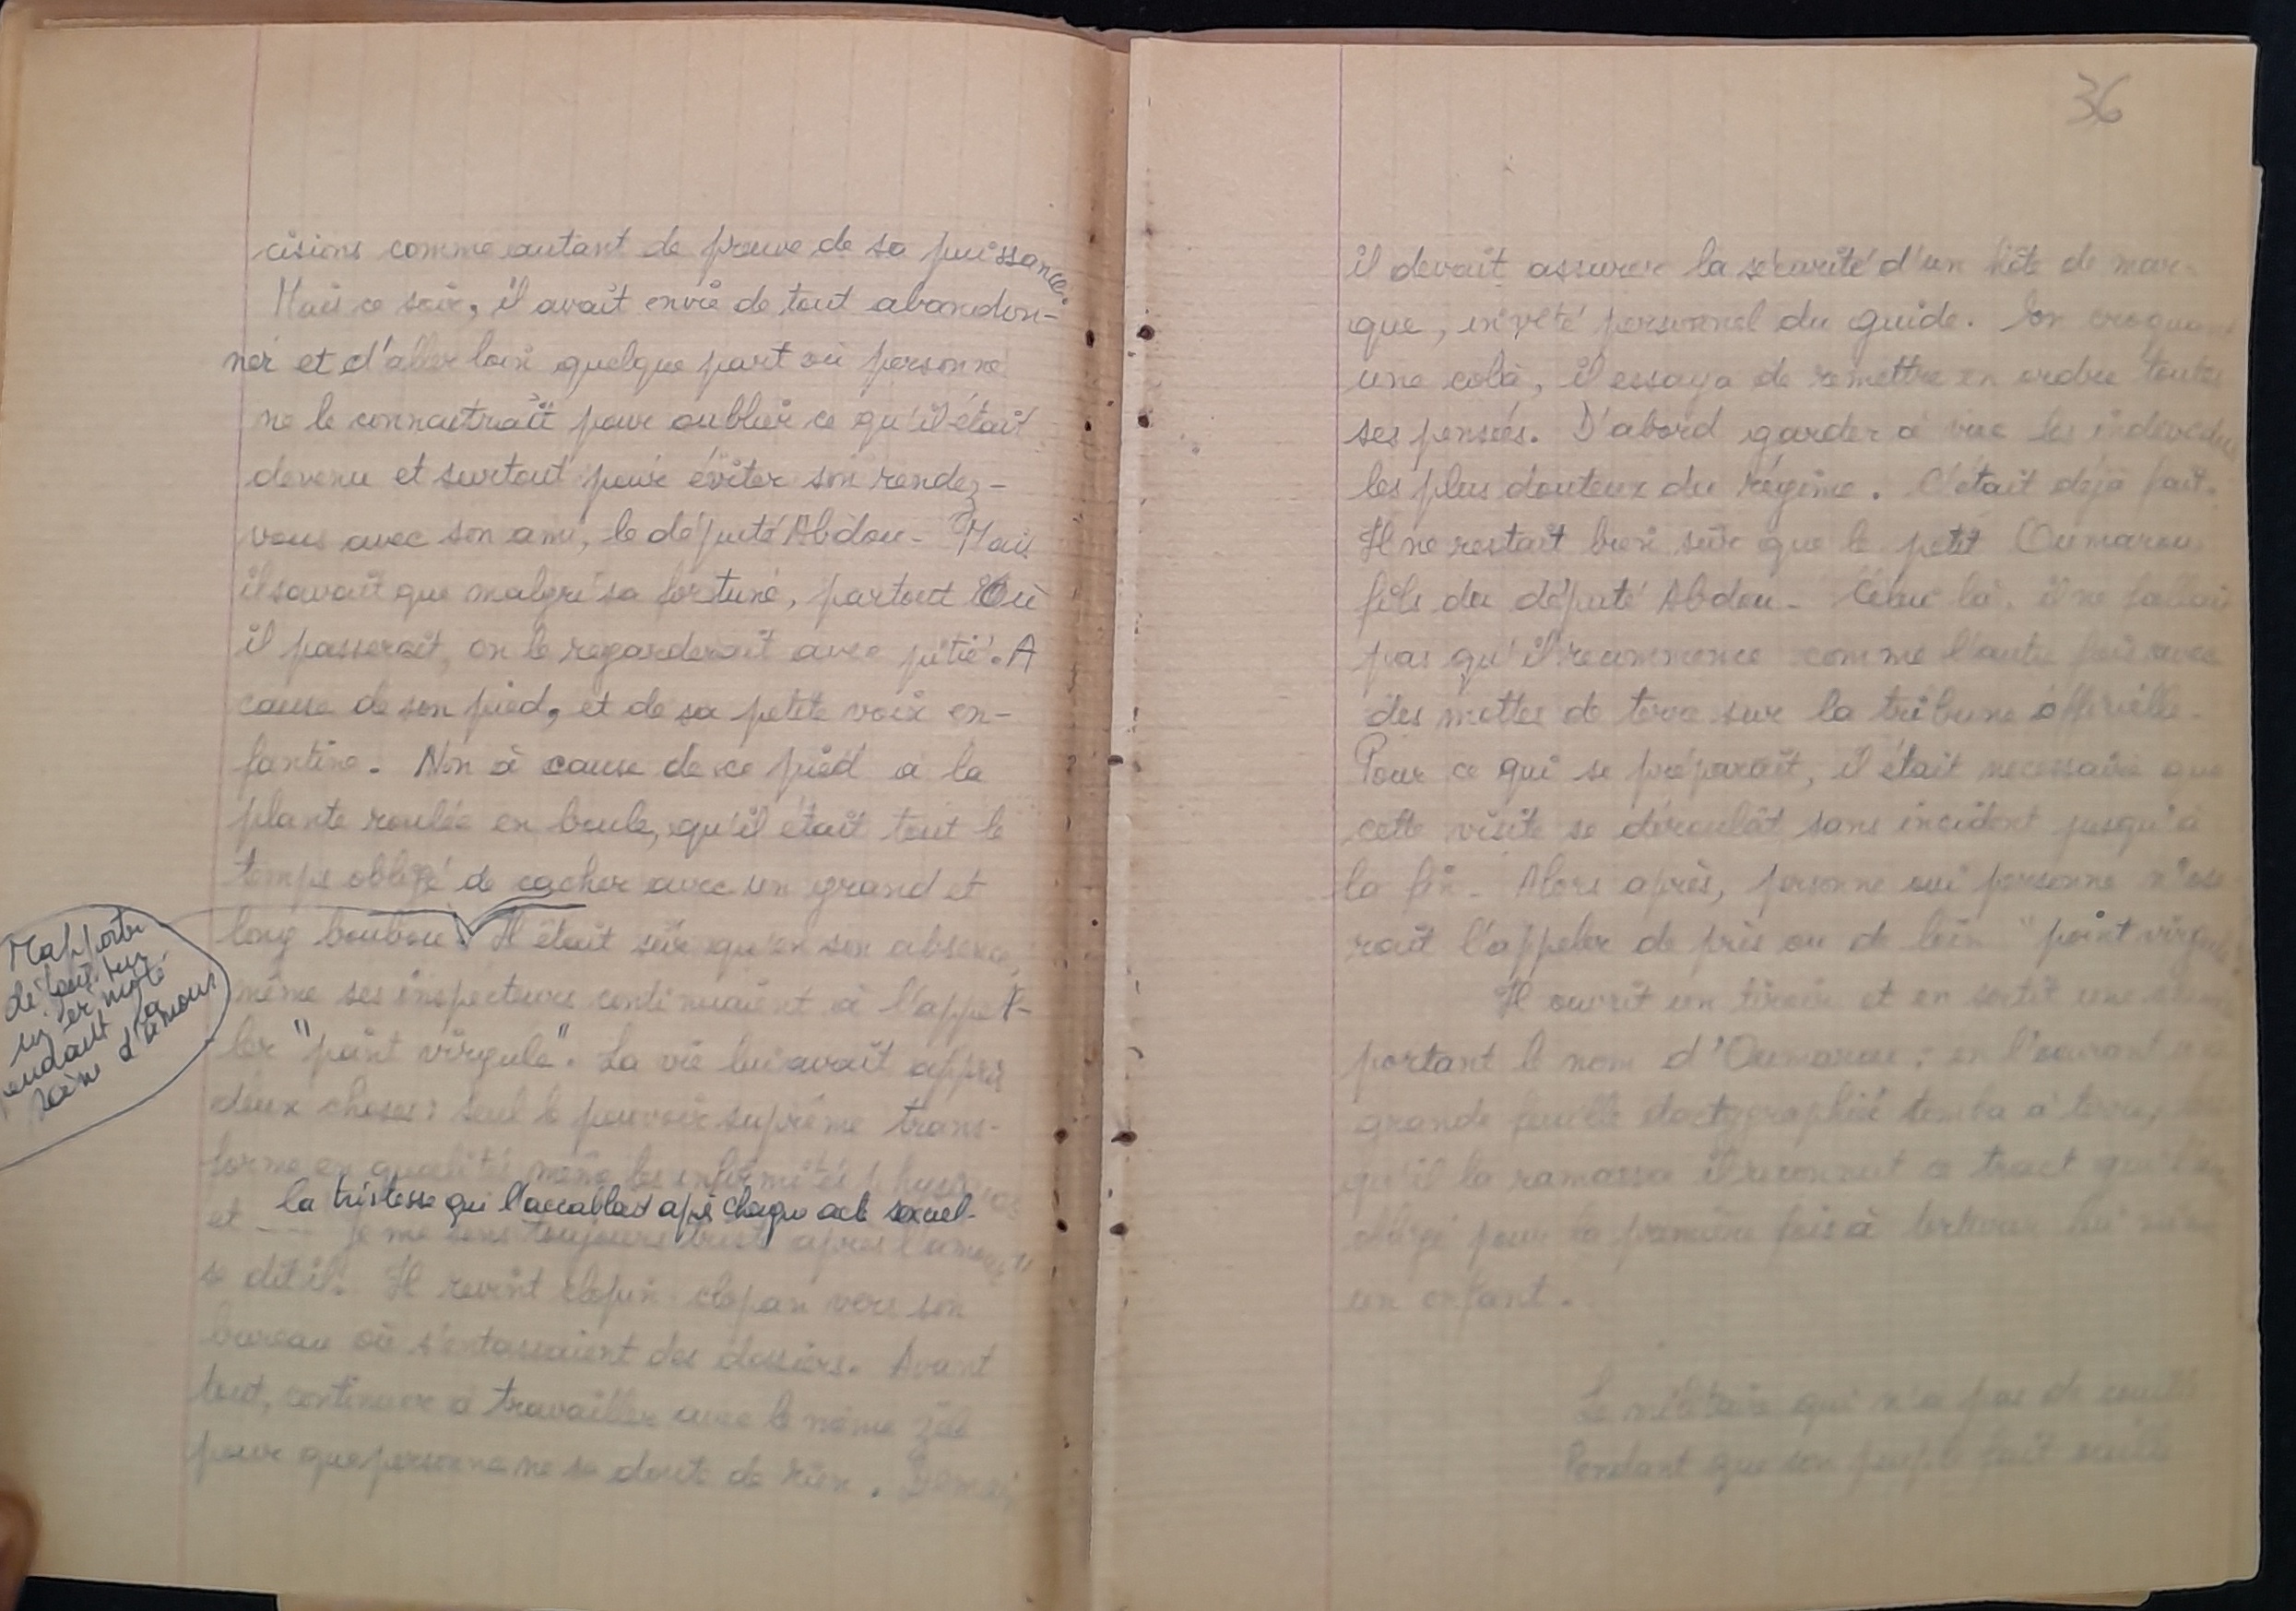 cisions comme autant de preuve de sa puissance.
Mais ce soir, il avait envie de tout abandon-
ner et d'aller loin quelque part où personne
ne le connaitraît pour oublier ce qu'il était
devenu et surtout pour éviter son rendez-
vous avec son ami, le député Abdou - Mais
il savait que malgré sa fortune, partout Où
il passerait, on le regarderait avec pitié. A
cause de son pied, et de sa petite voix en-
fantine. Non à cause de ce pied à la
plante roulée en boule, qu'il était tout le
temps obligé de cacher avec un grand et
long boubou. Il était sûr qu'en son absence,
même ses inspecteurs continuaient à l'appel-
ler "point virgule". La vie lui avait appris
deux choses: seul le pouvoir suprême trans-
forme en qualités même les infirmités physiques
la tristesse qui l'accablait après chaque acte sexuel-
et Je me sens toujours triste après l'amour"
se dit il. Il revint clopin clopan vers son
bureau où s'entassaient des dossiers. Avant
tout, continuer à travailler avec le même zèle
pour que personne ne se doute de rien. Demain
Rapporter
sur
pendant la
scène d'amour
36
il devait assurer la sécurité d'un hôte de mar-
que, invité personnel du guide. En croquant
une cola, il essaya de remettre en ordre toutes
ses pensées. D'abord garder à vue les individus
les plus douteux du régime. C'était déjà fait.
Il ne restait bien sûr que le petit Oumarou
fils du député Abdou - Celui là, il ne fallait
pas qu'il recommence comme l'autre fois avec
des mottes de terre sur la tribune officielle -
Pour ce qui se préparait, il était necessaire que
cette visite se déroulât sans incident jusqu'à
la fin - Alors après, personne oui personne n'ose-
rait l'appeler de près ou de loin "point virgule"
Il ouvrit un tiroir et en sortit une
portant le nom d'Oumarou; en l'ouvrant une
grande feuille dactygraphiée tomba à terre,
qu'il la ramassa il reconnut ce tract qui l'
obligé pour la première fois à torturer lui même
un enfant.
Le militaire qui n'a pas de
Pendant que son peuple fait